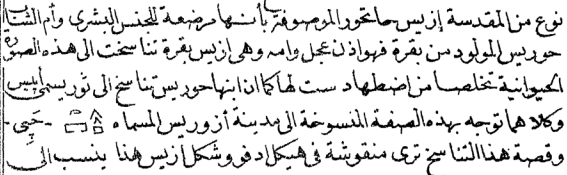 نوع من المقدسة إزيس حاتحور الموصوفة بأنها مرضعة للجنس البشرى وأم الشاب
حوريس المولود من بقرة فهو اذن عجل وامه وهى ازيس بقرة تناسخت الى هذه الصورة
الحيوانية تخلصا من اضطهاد ست لها كما ان ابنها حوريس تناسخ الى ثور يسمى ابيس
وكلاهما توجه بهذه الصفة المنسوخة الى مدينة أزوريس المسماه - حَپى -
وقصة هذا التناسخ ترى منقوشة فى هيكل ادفو وشكل ازيس هذا ينسب الى